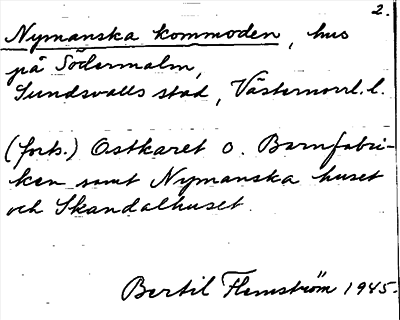 2.
Nymanska kommoden, hus
på Södermalm,
Sundsvalls stad, Västernorrl. l.
(forts.) Ostkaret o. Barnfabri-
ken samt Nymanska huset
och Skandalhuset.
Bertil Flemström 1945.